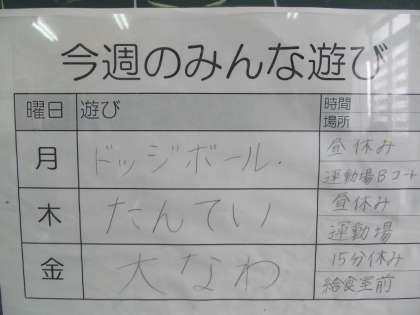 今週のみんな遊び
曜日 遊び 時間
場所
月 ドッジボール. 昼休み
運動場Bコート
木 たんてい 昼休み
運動場
金 大なわ 15分休み
給食室前